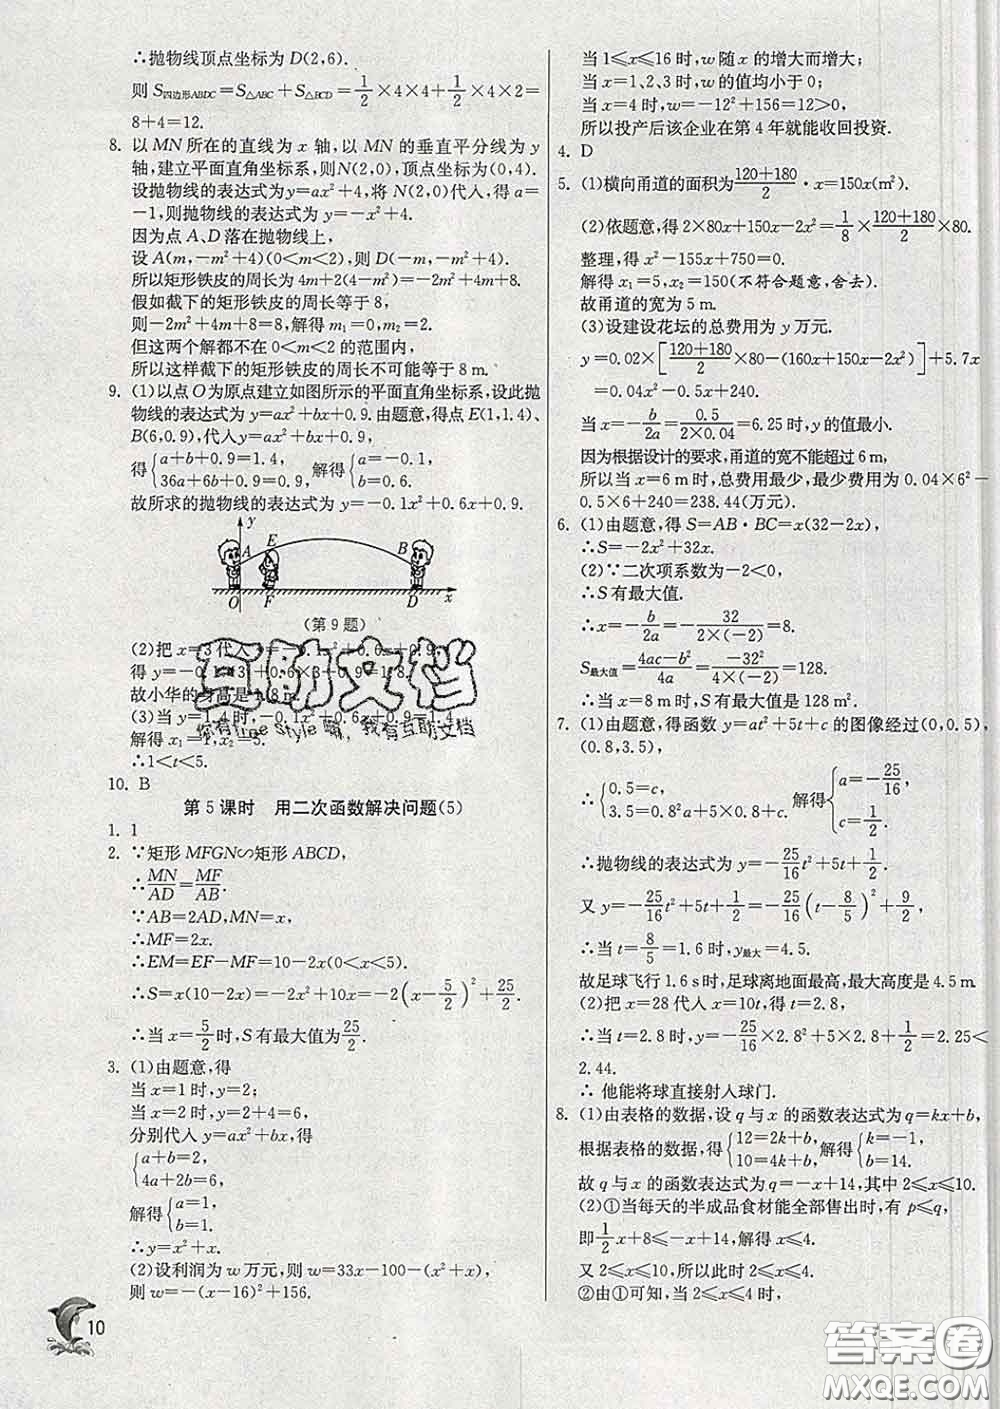 ∴抛物线顶点坐标为 D(2,6).
则 S四边形ABDC=S△ABC+S△BCD=1/2×4×4+1/2×4×2=
8+4=12.
8. 以 MN 所在的直线为 x 轴,以 MN 的垂直平分线为 y
轴,建立平面直角坐标系,则N(2,0),顶点坐标为(0,4).
设抛物线的表达式为y=ax²+4,将 N(2,0)代人,得 a=
-1,则抛物线的表达式为y=-x²+4.
因为点 A、D 落在抛物线上,
设 A(m,-m²+4)(0<m<2),则 D(-m,-m²+4).
所以矩形铁皮的周长为 4m+2(4-m²)=-2m²+4m+8.
假如截下的矩形铁皮的周长等于 8,
则-2m²+4m+8=8,解得 m₁=0,m₂=2.
但这两个解都不在 0<m<2 的范围内,
所以这样截下的矩形铁皮的周长不可能等于 8 m.
9. (1)以点O为原点建立如图所示的平面直角坐标系,设此抛
物线的表达式为 y=ax²+bx+0.9.由题意,得点E(1,1.4)、
B(6,0.9),代入y=ax²+bx+0.9,
得{a+b+0.9=1.4, 36a+6b+0.9=0.9, 解得{a=-0.1, b=0.6.
故所求的抛物线的表达式为 y=-0.1x²+0.6x+0.9.
y
A E B
O F D x
(第 9 题)
(2)把 x=3代入 y=-0.1x²+0.6x+0.9,
得 y=-0.1×3²+0.6×3+0.9=1.8.
故小华的身高是 1.8 m.
(3)当 y=1.4 时,-0.1x²+0.6x+0.9=1.4
解得 x₁=1,x₂=5.
∴1<t<5.
10. B
第 5 课时 用二次函数解决问题(5)
1. 1
2. ∵矩形 MFGN∽矩形 ABCD,
∴MN/AD=MF/AB.
∵AB=2AD,MN=x,
∴MF=2x.
∴EM=EF-MF=10-2x(0<x<5).
∴S=x(10-2x)=-2x²+10x=-2(x-5/2)²+25/2.
∴当 x=5/2时,S 有最大值为25/2.
3. (1)由题意,得
当 x=1 时,y=2;
当 x=2 时,y=2+4=6,
分别代人 y=ax²+bx,得
{a+b=2, 4a+2b=6,
解得{a=1, b=1.
∴y=x²+x.
(2)设利润为 w 万元,则 w=33x-100-(x²+x),
则 w=-(x-16)²+156.
当 1⩽x⩽16 时,w 随 x 的增大而增大;
当 x=1,2,3 时,w 的值均小于 0;
当 x=4 时,w=-12²+156=12>0,
所以投产后该企业在第 4 年就能收回投资.
4. D
5. (1)横向甬道的面积为(120+180)/2·x=150x(m²).
(2)依题意,得 2×80x+150x-2x²=1/8×(120+180)/2×80.
整理,得 x²-155x+750=0.
解得 x₁=5,x₂=150(不符合题意,舍去).
故甬道的宽为 5 m.
(3)设建设花坛的总费用为 y 万元.
y=0.02×[(120+180)/2×80-(160x+150x-2x²)]+5.7x
=0.04x²-0.5x+240.
当 x=-b/2a=0.5/(2×0.04)=6.25 时,y的值最小.
因为根据设计的要求,甬道的宽不能超过 6 m,
所以当 x=6 m 时,总费用最少,最少费用为 0.04×6²-
0.5×6+240=238.44(万元).
6. (1)由题意,得 S=AB·BC=x(32-2x),
∴S=-2x²+32x.
(2)∵二次项系数为-2<0,
∴S 有最大值.
∴x=-b/2a=-32/(2×(-2))=8.
S最大值=(4ac-b²)/4a=-32²/(4×(-2))=128.
∴当 x=8 m 时,S 有最大值是 128 m²
7. (1)由题意,得函数 y=at²+5t+c 的图像经过(0,0.5),
(0.8,3.5),
∴{0.5=c, 3.5=0.8²a+5×0.8+c. 解得{a=-25/16, c=1/2.
∴抛物线的表达式为 y=-25/16t²+5t+1/2.
又 y=-25/16t²+5t+1/2=-25/16(t-8/5)²+9/2,
∴当 t=8/5=1.6 时,y最大=4.5.
故足球飞行 1.6 s时,足球离地面最高,最大高度是 4.5 m
(2)把 x=28 代人 x=10t,得 t=2.8,
∴当 t=2.8 时,y=-25/16×2.8²+5×2.8+1/2=2.25<
2.44.
∴ 他能将球直接射人球门.
8. (1)由表格的数据,设 q 与 x 的函数表达式为 q=kx+b,
根据表格的数据,得{12=2k+b, 10=4k+b, 解得{k=-1, b=14.
故 q 与 x 的函数表达式为 q=-x+14,其中 2⩽x⩽10.
(2)①当每天的半成品食材能全部售出时,有 p⩽q,
即1/2x+8⩽-x+14,解得 x⩽4.
又 2⩽x⩽10,所以此时 2⩽x⩽4.
②由①可知,当 2⩽x⩽4 时,
10
互助文档
你有free style嘛,我有互助文档
答案圈
MXQE.COM